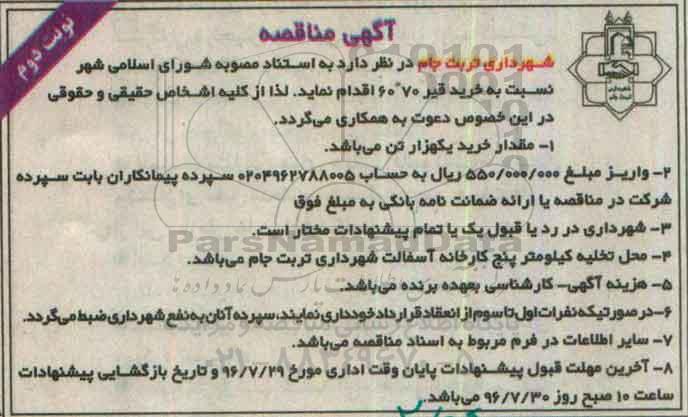 آگهی مناقصه
نوبت دوم
شهرداری تربت جام در نظر دارد به استناد مصوبه شورای اسلامی شهر
نسبت به خرید قیر ۷۰-۶۰ اقدام نماید. لذا از کلیه اشخاص حقیقی و حقوقی
در این خصوص دعوت به همکاری می‌گردد.
۱- مقدار خرید یکهزار تن می‌باشد.
۲- واریز مبلغ ۵۵۰/۰۰۰/۰۰۰ ریال به حساب ۰۲۰۴۹۶۲۷۸۸۰۰۵ سپرده پیمانکاران بابت سپرده
شرکت در مناقصه یا ارائه ضمانت نامه بانکی به مبلغ فوق
۳- شهرداری در رد یا قبول یک یا تمام پیشنهادات مختار است.
ParsNamadData
۴- محل تخلیه کیلومتر پنج کارخانه آسفالت شهرداری تربت جام می‌باشد.
۵- هزینه آگهی- کارشناسی بعهده برنده می‌باشد.
۶- در صورتیکه نفرات اول تا سوم از انعقاد قرارداد خودداری نمایند، سپرده آنان به نفع شهرداری ضبط می‌گردد.
۷- سایر اطلاعات در فرم مربوط به اسناد مناقصه می‌باشد.
۸- آخرین مهلت قبول پیشنهادات پایان وقت اداری مورخ ۹۶/۷/۲۹ و تاریخ بازگشایی پیشنهادات
ساعت ۱۰ صبح روز ۹۶/۷/۳۰ می‌باشد.